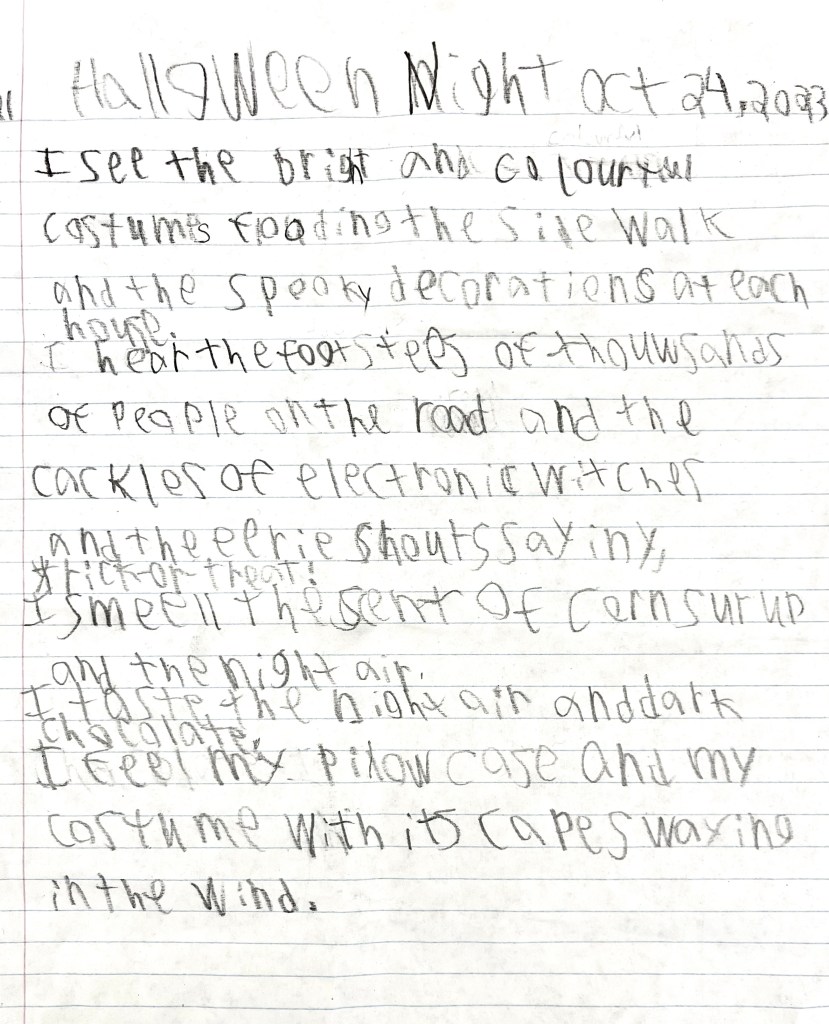 Halloween Night Oct 24, 2023
I see the bright and colourful
costumes floading the side walk
and the spooky decorations at each
house.
I hear the footsteps of thouwsands
of people on the road and the
cackles of electronic witches
and the eerie shouts saying,
trick-or-treat!
I smeell the sent of corn surup
and the night air.
I taste the night air and dark
chocolate.
I feel my pilow case and my
costume with its capes waving
in the wind.